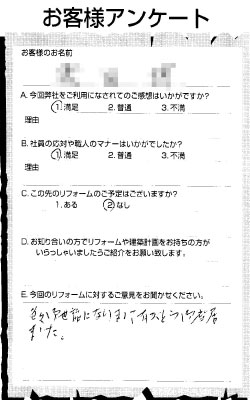 お客様アンケート
お客様のお名前
A. 今回弊社をご利用になされてのご感想はいかがですか?
1. 満足 2. 普通 3. 不満
理由
B. 社員の応対や職人のマナーはいかがでしたか?
1. 満足 2. 普通 3. 不満
理由
C. この先のリフォームのご予定はございますか?
1. ある 2. なし
D. お知り合いの方でリフォームや建築計画をお持ちの方が
いらっしゃいましたらご紹介をお願い致します。
E. 今回のリフォームに対するご意見をお聞かせください。
ました。